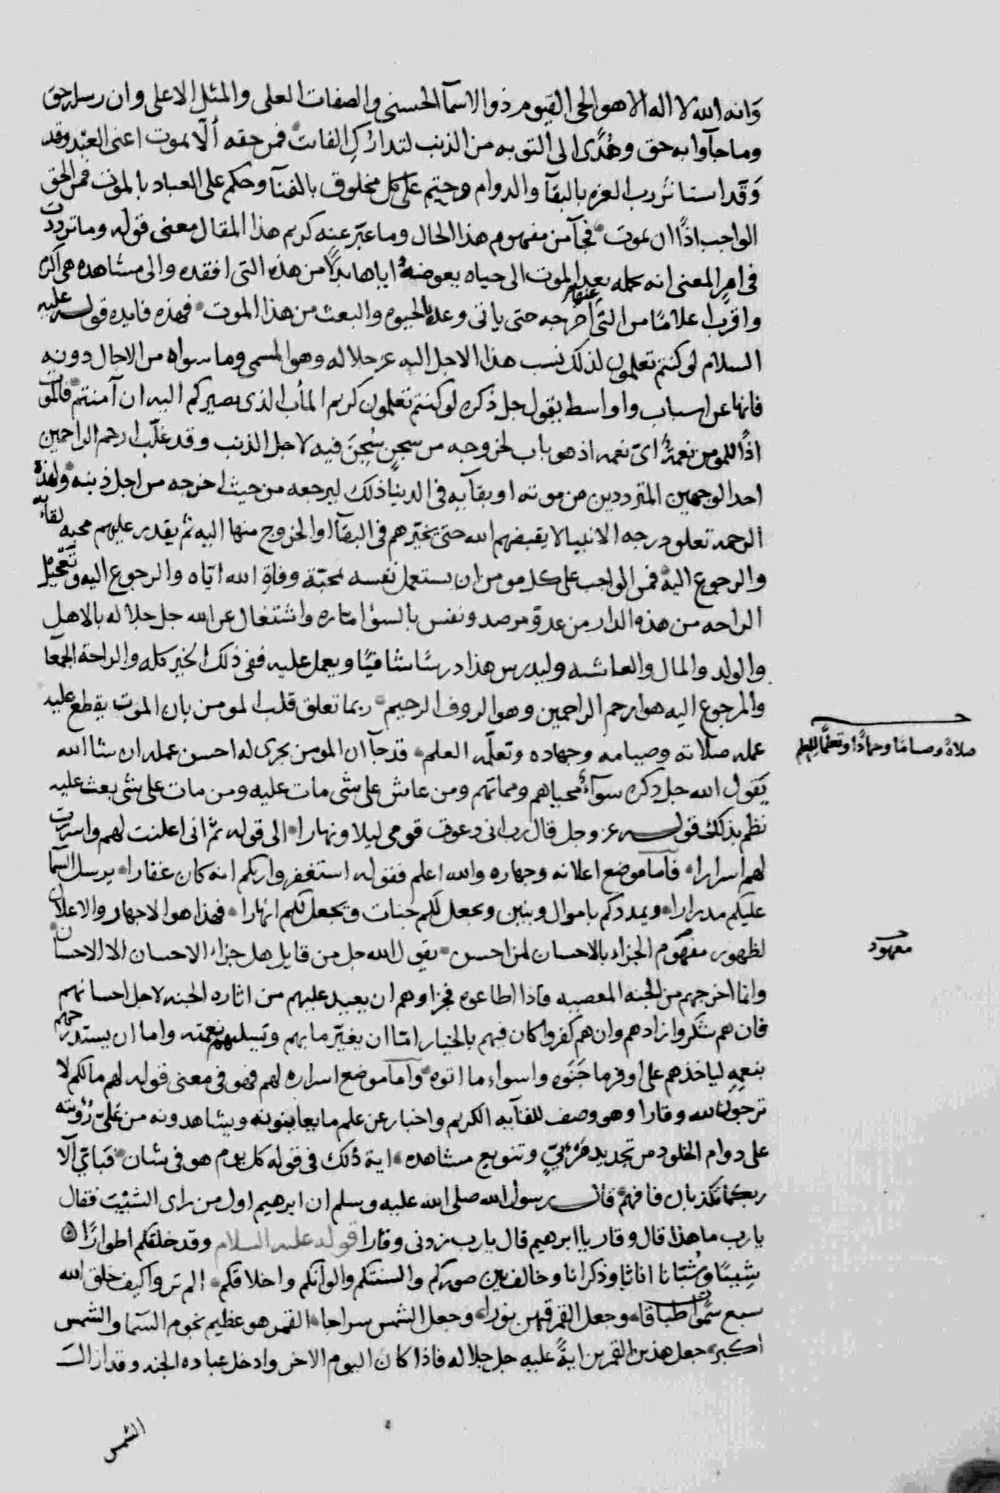 وانه الله لا اله الا هو الحي القيوم ذو الاسمآ الحسنى والصفات العلى والمثل الاعلى وان رسله حق
وما جآوا به حق وهُدًى الى التوبه من الذنب لتدارك الفائت فمن حقه ألّا يموت اعنى العبد وقد
وقد استاثر رب العزه بالبقآ والدوام وحتم على كل مخلوق بالفنآ وحكم على العباد بالموت فمن الحق
الواجب اذًا ان يموت فجآ من مفهوم هذا الحال وما عبّر عنه كريم هذا المقال معنى قوله وما ترددت
فى امرٍ المعنى انه يحمله بعد الموت الى حياه يعوضهُ اياها بدلًا من هذه التى افقده والى مشاهده هى اكرم
واقرب اعلامًا من التى اخرجه عنها حتى ياتى وعده بالحيوه والبعث من هذا الموت فهذه فايده قوله عليه
السلام لو كنتم تعلمون لذلك نسب هذا الاجل اليه عز جلاله وهو المسمى وما سواه من الاجال دونه
فانها عن اسباب واواسط يقول جل ذكره لو كنتم تعلمون كريم المآب الذى مصيركم اليه ان آمنتم فالموت
اذًا للمومن نعمةٌ اىّ نعمه اذ هو باب لخروجه من سجنٍ سُجِنَ فيه لاجل الذنب وقد غلّب ارحم الراحمين
احد الوجهين المترددين من موته او بقآيه فى الدنيا ذلك ليرجعه من حيث اخرجه من اجل ذنبه ولهذه
الرحمه تعلو درجه الانبيا لا يقبضهم الله حتى يخيّرهم فى البقآ او الخروج منها اليه ثم يقدر عليهم محبه لقآيه
والرجوع اليه فمن الواجب على كل مومن ان يستعمل نفسه لمحبّة وفاةِ الله ايّاه والرجوع اليه وتعجّل
الراحه من هذه الدار من عدوّ مرصد ونفس بالسوٓ امّاره واشتغال عن الله جل جلاله بالاهل
والولد والمال والمعاشه وليدرس هذا درسًا شافيًا ويعمل عليه ففى ذلك الخير كله والراحه اجمعها
والمرجوع اليه هو ارحم الراحمين وهو الروف الرحيم ربما تعلق قلب المومن بان الموت يقطع عليه
عمله صلاته وصيامه وجهاده وتعلّمه العلم قد جآ ان المومن يجرى له احسن عمله ان شا الله
يقول الله جل ذكره سوآءً محياهم ومماتهم ومن عاش على شى مات عليه ومن مات على شى بعث عليه
نظم بذلك قوله عز وجل قال رب انى دعوت قومى ليلا ونهارا الى قوله ثم انى اعلنت لهم واسررت
لهم اسرارا فاما موضع اعلانه وجهاره والله اعلم فقوله استغفروا ربكم انه كان غفارا يرسل السمآ
عليكم مدرارا ويمددكم باموال وبنين ويجعل لكم جنات ويجعل لكم انهارا فهذا هو الاجهار والاعلان
لظهور مفهوم الجزاء بالاحسان لمن احسن يقول الله جل من قايل هل جزاء الاحسان الا الاحسان
وانما اخرجهم من الجنه المعصيه فاذا اطاعوه فجزاوهم ان يعيد عليهم من اثاره الجنه لاجل احسانهم
فان هم شكروا زادهم وان هم كفروا كان فيهم بالخيار امّا ان يغيّر ما بهم ويسلبهم نعمته واما ان يستدرجهم
بنعمه لياخذهم على اوفر ما جَنَوه واسواء ما اتوه وأما موضع اسراره لهم فهو فى معنى قوله لهم ما لكم لا
ترجون لله وقارا وهو وصف للقآيه الكريم واخبار عن علم ما يعاينونه ويشاهدونه من عَلِىّ رُؤيته
على دوام الخلود من تجديد مَزْيدٍ وتنويع مشاهده اية ذلك فى قوله كل يوم هو فى شان فباى آلا
ربكما تكذبان فافهم قال رسول الله صلى الله عليه وسلم ان ابرهيم اول من راى الشيْب فقال
يا رب ما هذا قال وقار يا ابرهيم قال يا رب زدنى وقارا قوله عليه السلام وقد خلقكم اطوارًا
شِيبًا وشُبّانا اناثا وذكرانا وخالف بين صوركم والسنتكم والوانكم واخلاقكم الم تروا كيف خلق الله
سبع سموات طباقا وجعل القمر فيهن نورا وجعل الشمس سراجا القمر هو عظيم نجوم السّما والشمس
اكبر جعل هذين القمرين ايةً عليه جل جلاله فاذا كان اليوم الاخر وادخل عباده الجنه وقد ازال
الشمس
صلاةً وصيامًا وجهادًا وتعلّمًا للعلم
معهود